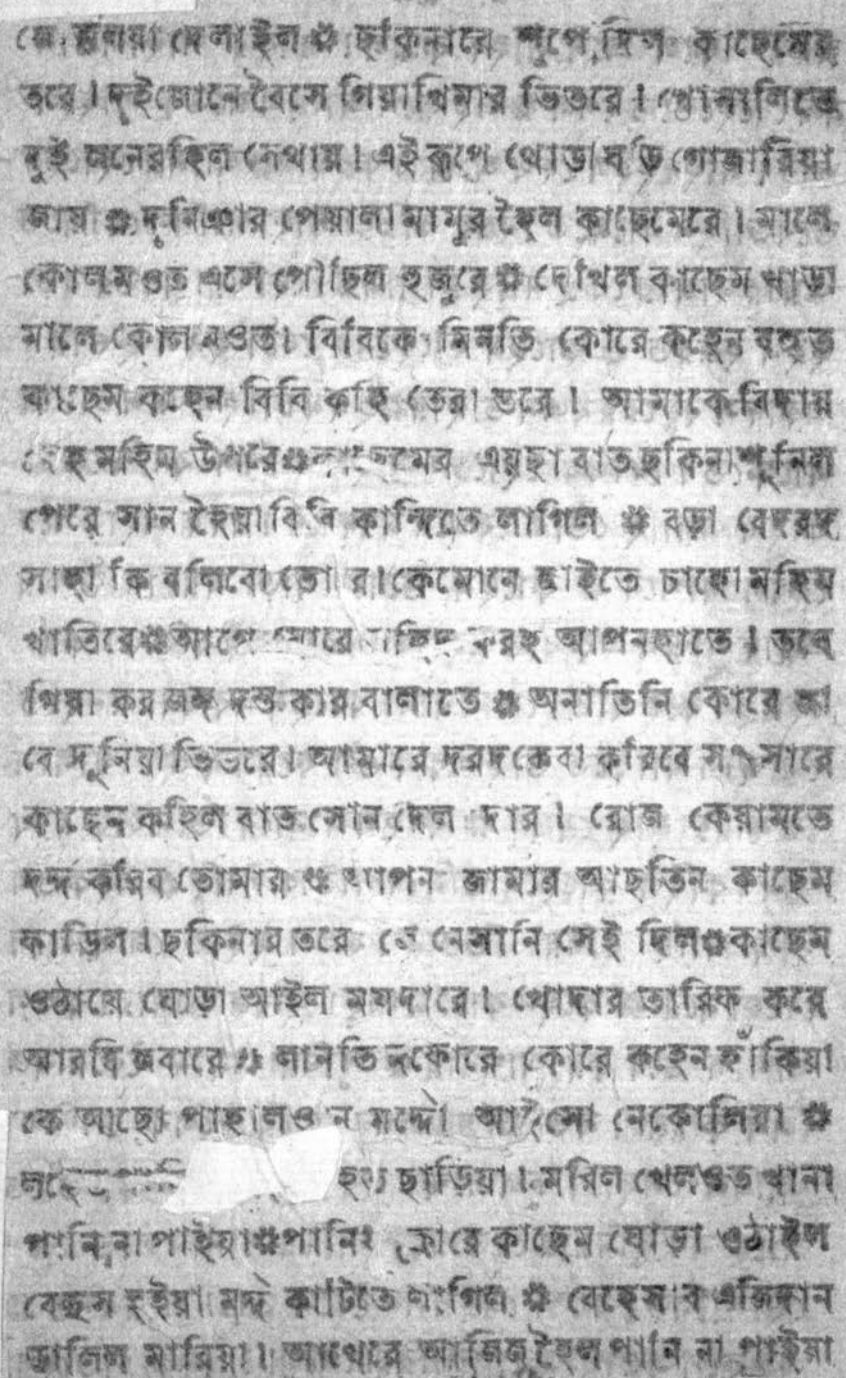 দেলাইল ❋ ছকিনারে শপে দিল কাছেমের
তরে । দুইজোনে বৈসে গিয়া খিমার ভিতরে । খোসালিতে
দুই জনে রহিল সেথায় । এই রূপে থোড়া ঘড়ি গোজারিয়া
জায় ❋ দুনিঞার পেয়ালা মামুর হৈল কাছেমেরে । মালে
কোলমওত এসে পৌছিল হুজুরে ❋ দেখিল কাছেম খাড়া
মালেকোলমওত । বিবিকে মিনতি কোরে কহেন বহুত
কাছেম কহেন বিবি কহি তেরা তরে । আমাকে বিদায়
দেহ মহিম উপরে ❋ কাছেমের এয়ছা বাত ছকিনা শুনিয়া
পেরেসান হৈয়া বিবি কান্দিতে লাগিল ❋ বড়া বেদরদ
সাহা কি বলিবো তোরে । কেমোনে জাইতে চাহো মহিম
খাতিরে ❋ আগে মোরে করহ আপন হাতে । তবে
গিয়া কর জঙ্গ দস্ত কারবালাতে ❋ অনাতিনি কোরে জা
বে দুনিয়া ভিতরে । আমারে দরদ কেবা করিবে সংসারে
কাছেম কহিল বাত সোন দেল দার । রোজ কেয়ামতে
করিব তোমার ❋ আপন জামার আছতিন কাছেম
ফাড়িল । ছকিনার তরে নেসানি সেই দিল ❋ কাছেম
ওঠায়ে ঘোড়া আইল ময়দানে । খোদার তারিফ করে
আরবি জবানে ❋ লানতি কোরে কহেন হাঁকিয়া
কে আছো পাহালওান মর্দ্দো আইসো নেকোলিয়া ❋
ছাড়িয়া । মরিল খেলওত খানা
পানি না পাইয়া ❋ পানি২ কোরে কাছেম ঘোড়া ওঠাইল
বেহুস হইয়া মর্দ্দ কাটিতে লাগিল ❋ বেহেসাব এজিদান
ডালিল মারিয়া । আখেরে আজিজ হৈল পানি না পাইয়া